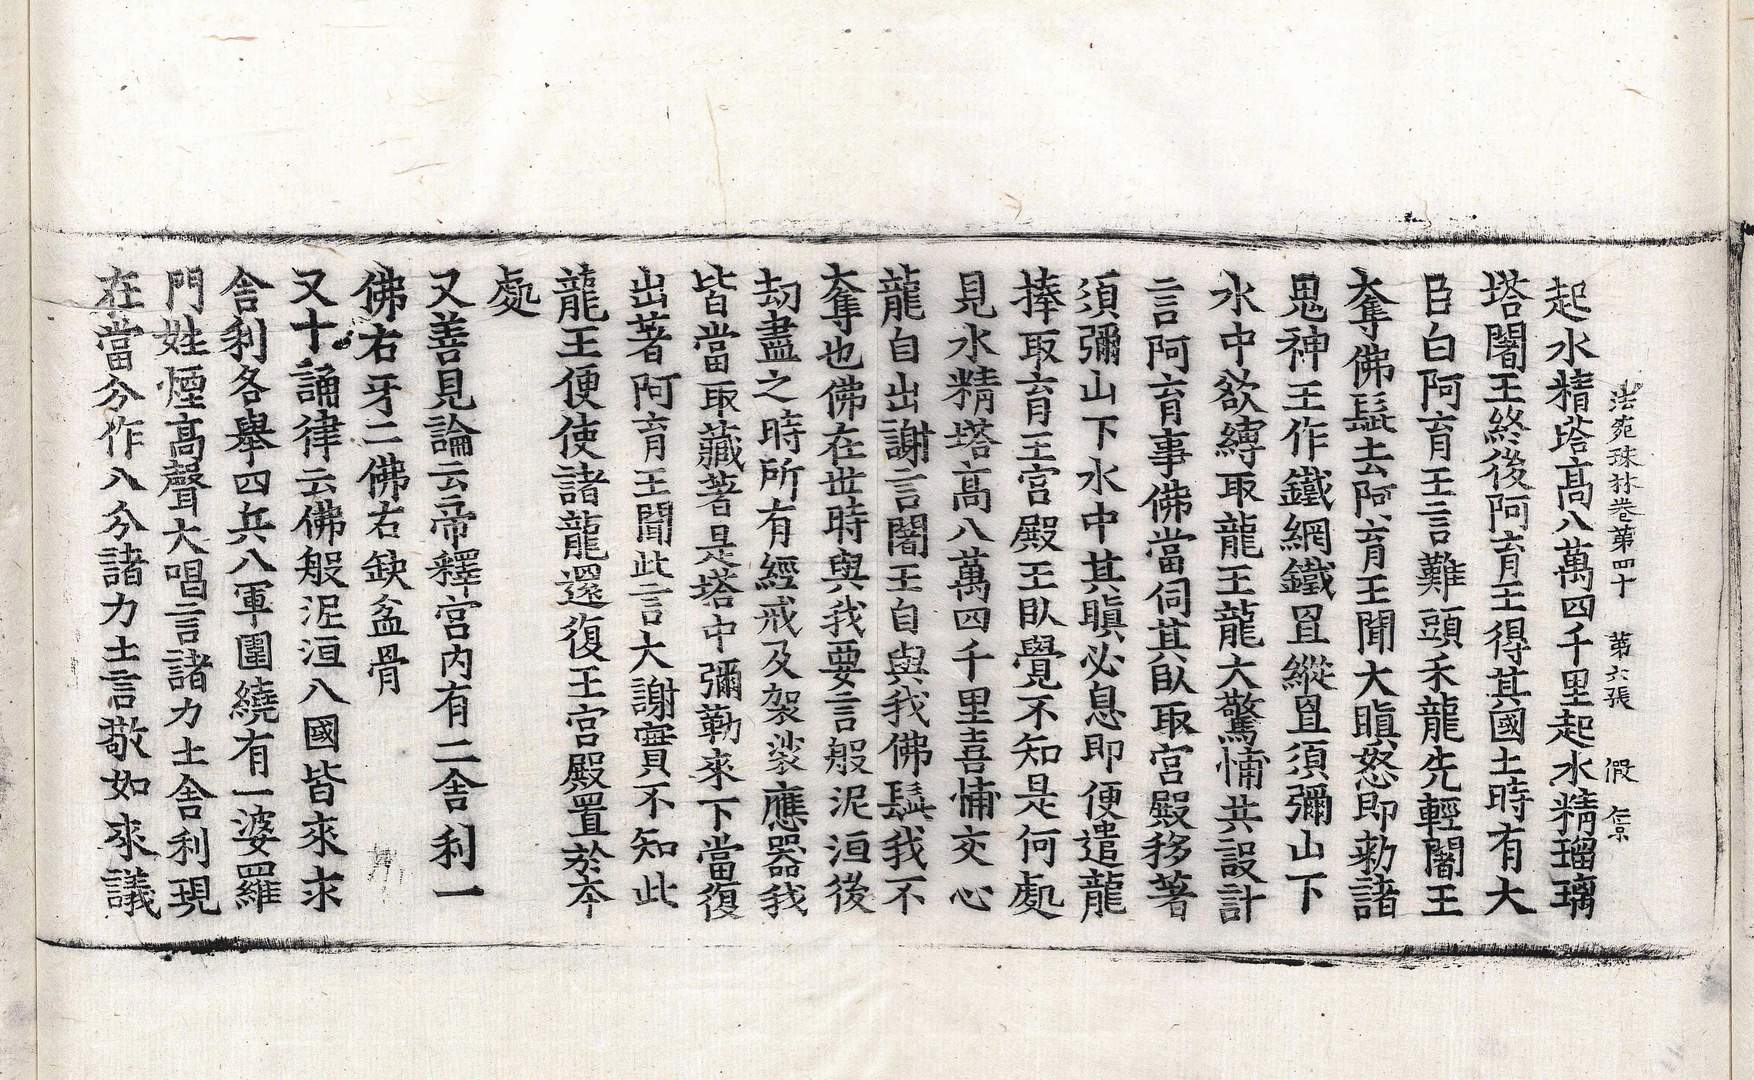 法苑珠林卷第四十　第六張　假　仁京
起水精塔高八萬四千里起水精瑠璃
塔闍王終後阿育王得其國土時有大
臣白阿育王言難頭禾龍先輕闍王
奪佛髭去阿育王聞大瞋怒即勑諸
鬼神王作鐵網鐵罝縱罝須彌山下
水中欲縛取龍王龍大驚怖共設計
言阿育事佛當伺其臥取宮殿移著
須彌山下水中其瞋必息即便遣龍
捧取育王宮殿王臥覺不知是何處
見水精塔高八萬四千里喜怖交心
龍自出謝言闍王自與我佛髭我不
奪也佛在世時與我要言般泥洹後
劫盡之時所有經戒及袈裟應器我
皆當取藏著是塔中彌勒來下當復
出著阿育王聞此言大謝實不知此
龍王便使諸龍還復王宮殿置於本
處
又善見論云帝釋宮內有二舍利一
佛右牙二佛右缺盆骨
又十誦律云佛般泥洹八國皆來求
舍利各舉四兵八軍圍繞有一婆羅
門姓煙高聲大唱言諸力士舍利現
在當分作八分諸力士言敬如來議